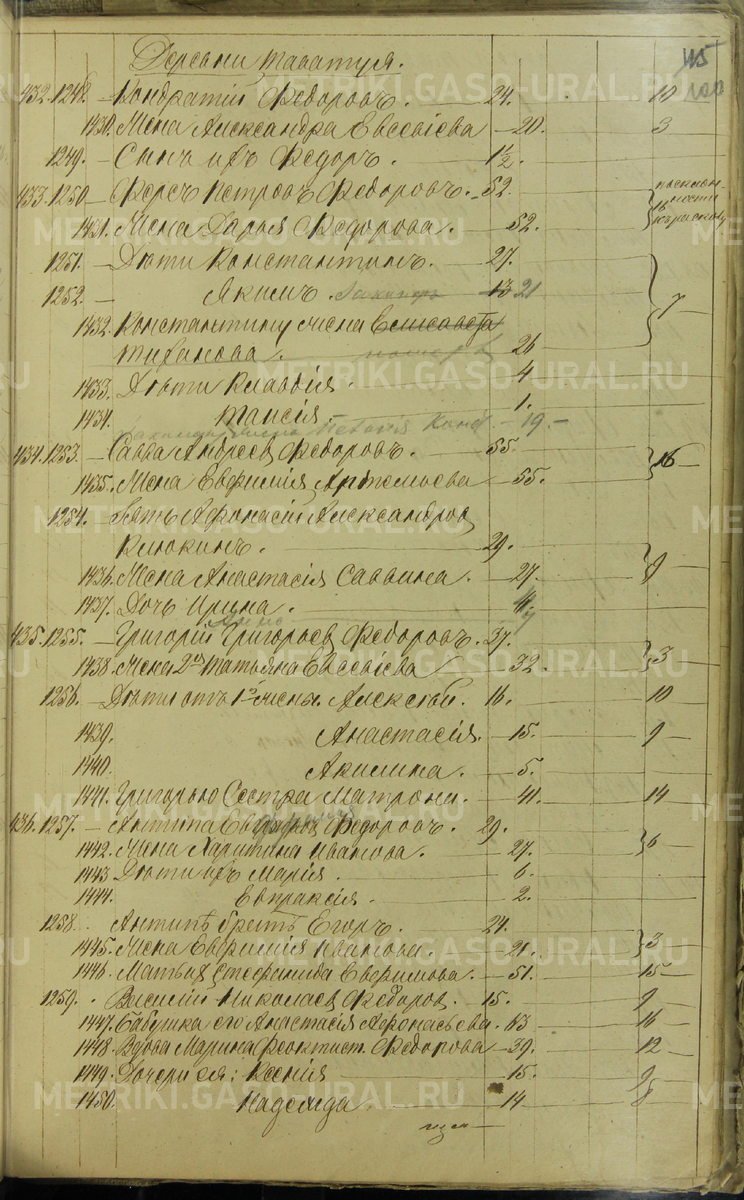 Деревни Таватуя.
115
432. 1248. Кондратий Федоровъ. 24. 10
1430. Жена Александра Евсевiева 20. 3
1249. Сынъ ихъ Федоръ. 1½.
433. 1250 Петровъ Федоровъ. 52.
1431. Жена Дарья Федорова. 52.
1251. Дѣти Константинъ. 27.
1252. Якимъ. 13 21 7
1432. Константину жена Елисавета
Тиханова 26
1433. Дѣти Клавдiя. 4
1434. Таисiя. 1.
19
434. 1253. Савва Андреев Федоровъ. 55.
1435. Жена Евфимiя Артемьева 55. 16
1254. Зять Афонасiй Александров
Клюкинъ. 29.
1436. Жена Анастасiя Саввина. 27. 9
1437. Дочь Ирина. 4
435. 1255. Григорiй Григорьев Федоровъ. 37.
1438. Жена 2я Татьяна Евсевiева 32. 3
1256. Дѣти отъ 1й жены Алексѣй. 16. 10
1439. Анастасiя. 15. 9
1440. Акилина. 5.
1441. Григорью Сестра Матрона. 41. 14
436. 1257. Антипа Федоровъ. 29.
1442. Жена Харитина Иванова. 27. 6
1443 Дѣти ихъ Марiя. 6.
1444. Евпраксiя. 2.
1258. Антипѣ братъ Егоръ. 24.
1445. Жена Евфимiя Иванова. 21. 3
1446. Мать их Стефанида Евфимова. 51. 15
1259. Василий Николаев Федоров. 15. 9
1447. Бабушка его Анастасiя Афонасьева. 63 16
1448. Вдова Марина Феоктист. Федорова 39. 12
1449. Дочери ея: Ксенiя 15. 9
1450. Надежда 14 8
METRIKI.GASO-URAL.RU